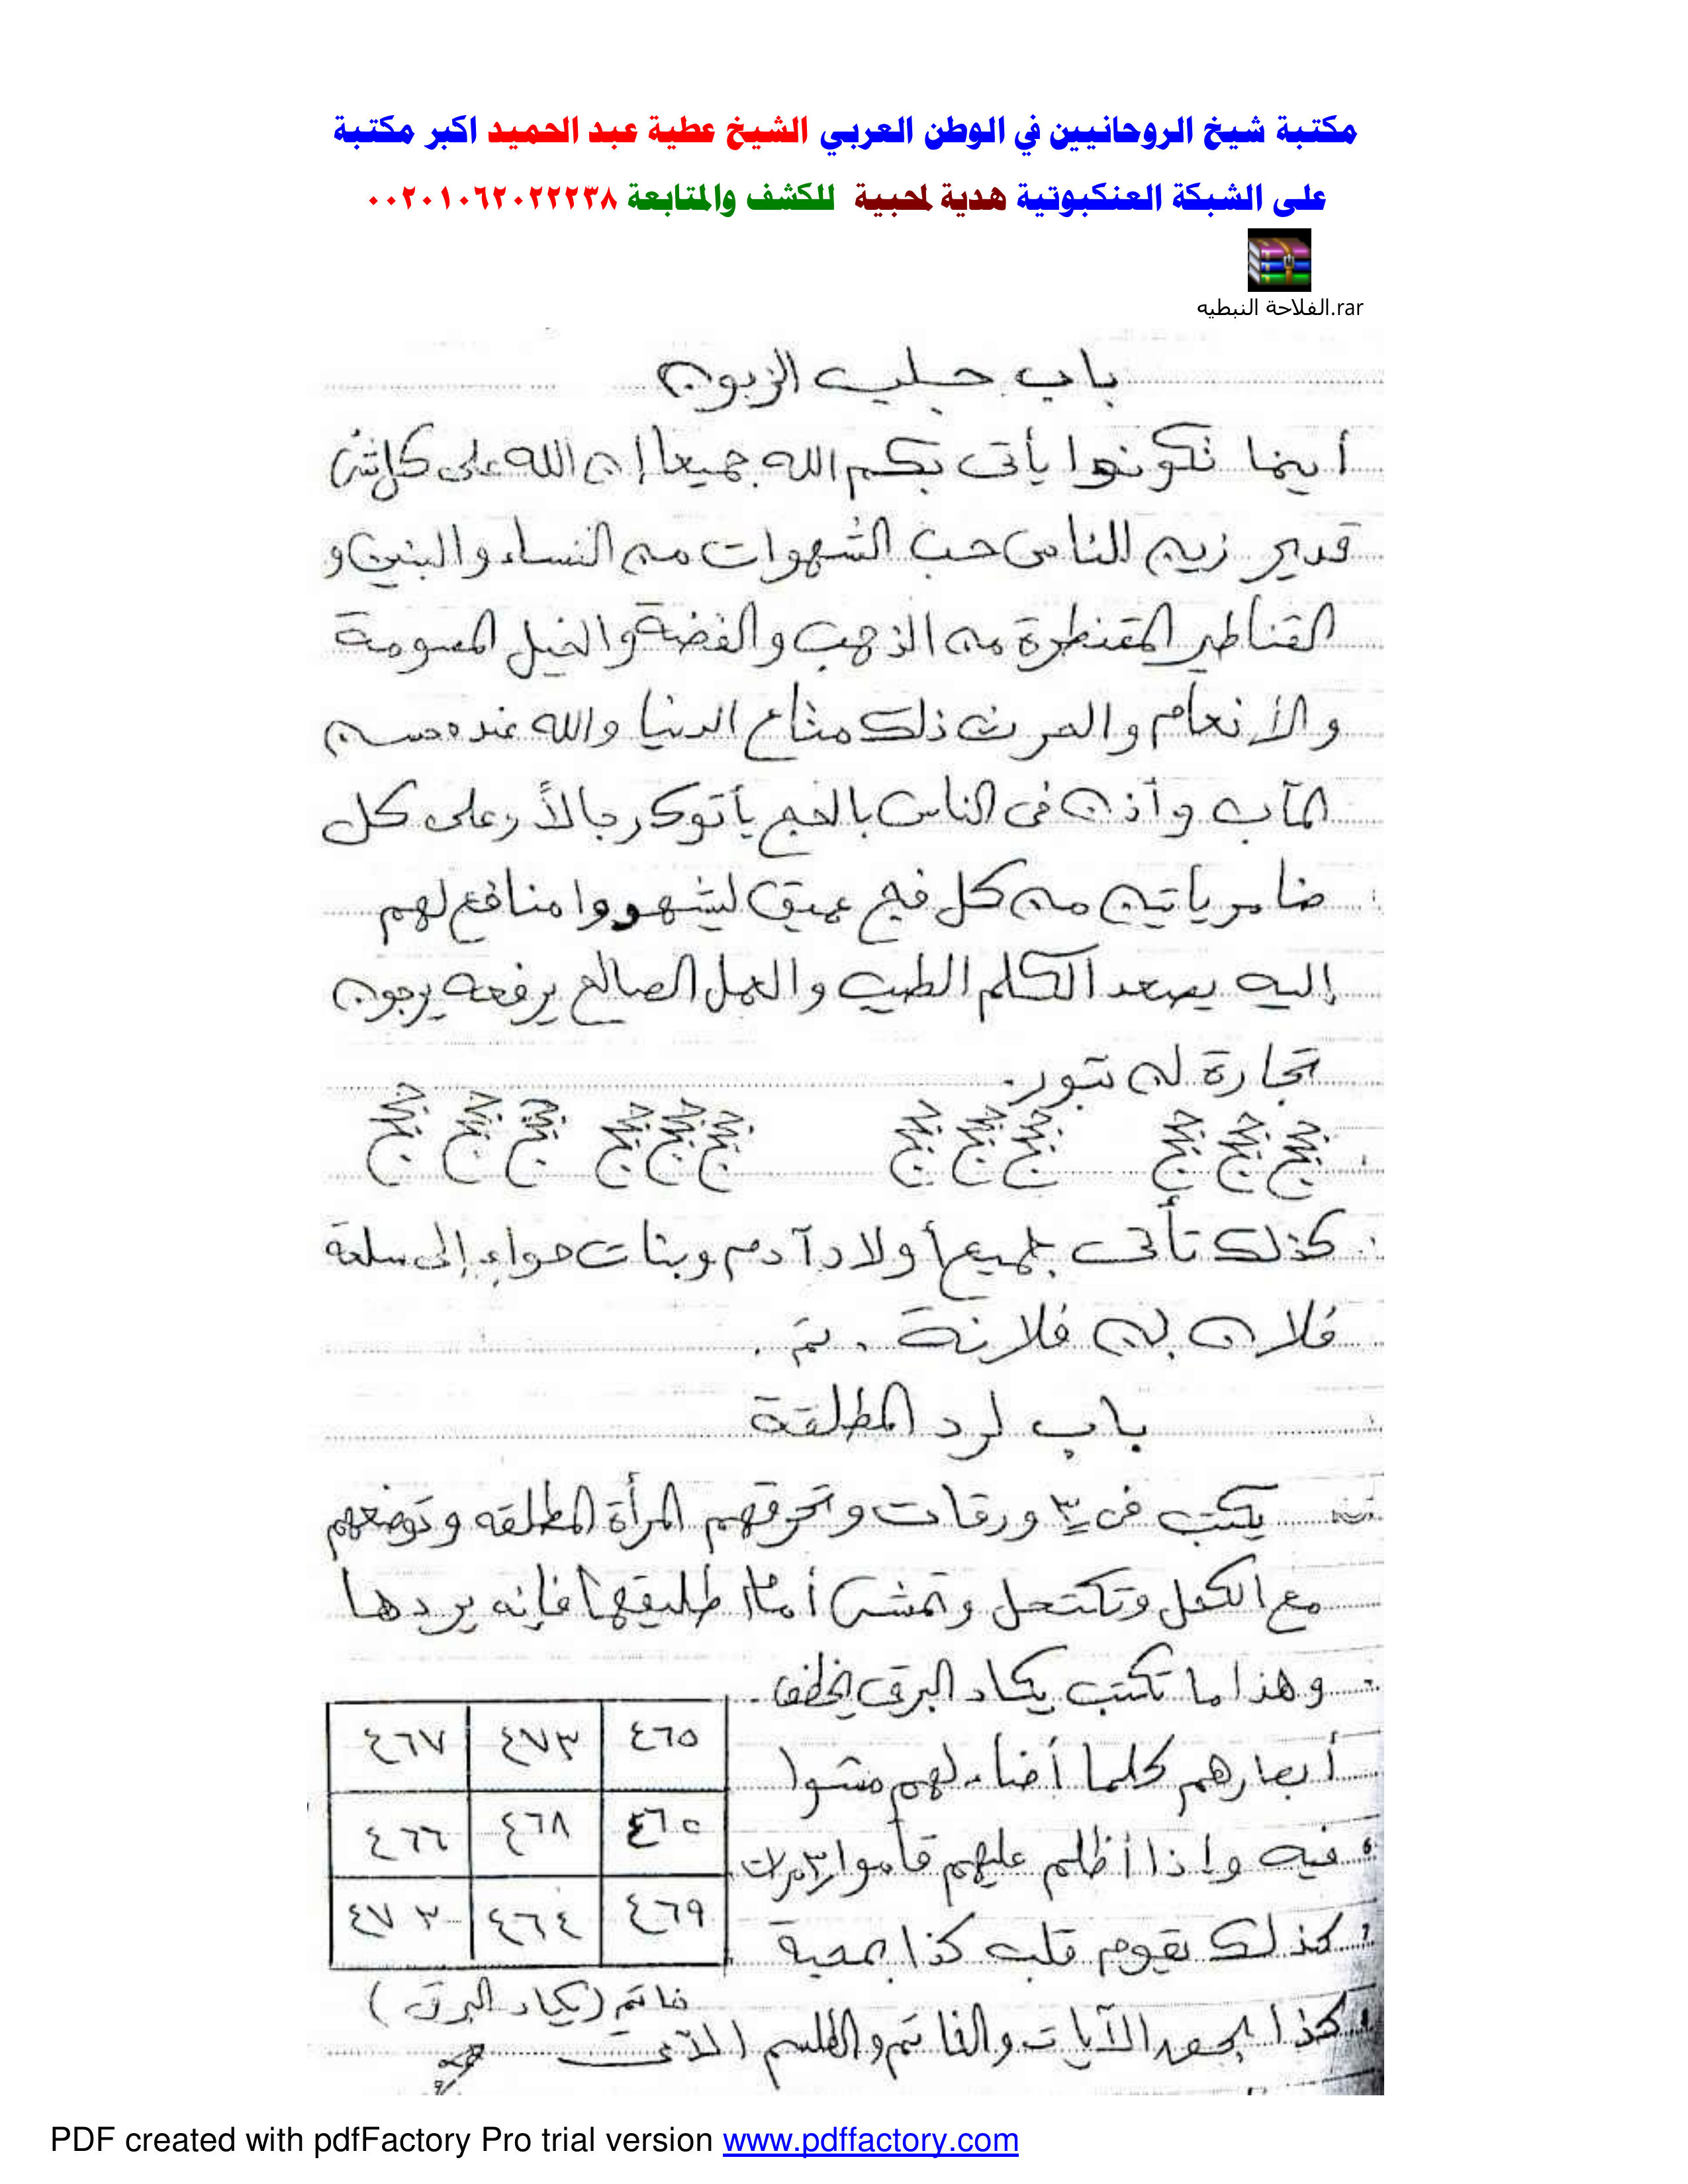 مكتبة شيخ الروحانيين في الوطن العربي الشيخ عطية عبد الحميد اكبر مكتبة
على الشبكة العنكبوتية هدية لمحبية للكشف والمتابعة ٠٠٢٠١٠٦٢٠٢٢٢٣٨
الفلاحة النبطيه.rar
باب جلب الزبون
أينما تكونوا يأتى بكم الله جميعا إن الله على كل شئ
قدير زين للناس حب الشهوات من النساء والبنين و
القناطير المقنطرة من الذهب والفضة والخيل المسومة
والأنعام والحرث ذلك متاع الدنيا والله عنده حسن
المآب وأذن فى الناس بالحج يأتوك رجالاً وعلى كل
ضامر يأتين من كل فج عميق ليشهدوا منافع لهم
إليه يصعد الكلم الطيب والعمل الصالح يرفعه يرجون
تجارة لن تبور.
كذلك تأتى بجميع أولاد آدم وبنات حواء إلى سلعة
فلان بن فلانة . تم .
باب لرد المطلقة
يكتب فى ٣ ورقات وتحرقهم المرأة المطلقه وتوضعهم
مع الكحل وتكتحل وتمشى أمام طليقها فإنه يردها
وهذا ما تكتب يكاد البرق يخطف
أبصارهم كلما أضاء لهم مشوا
فيه وإذا أظلم عليهم قاموا ٣ مرات
كذلك تقوم قلب كذا بمحبة
كذا بحق الآيات والخاتم والطلسم الآتى
٤٦٥ ٤٧٣ ٤٦٧
٤٦٥ ٤٦٨ ٤٦٦
٤٦٩ ٤٦٤ ٤٧٣
خاتم (يكاد البرق)
PDF created with pdfFactory Pro trial version www.pdffactory.com